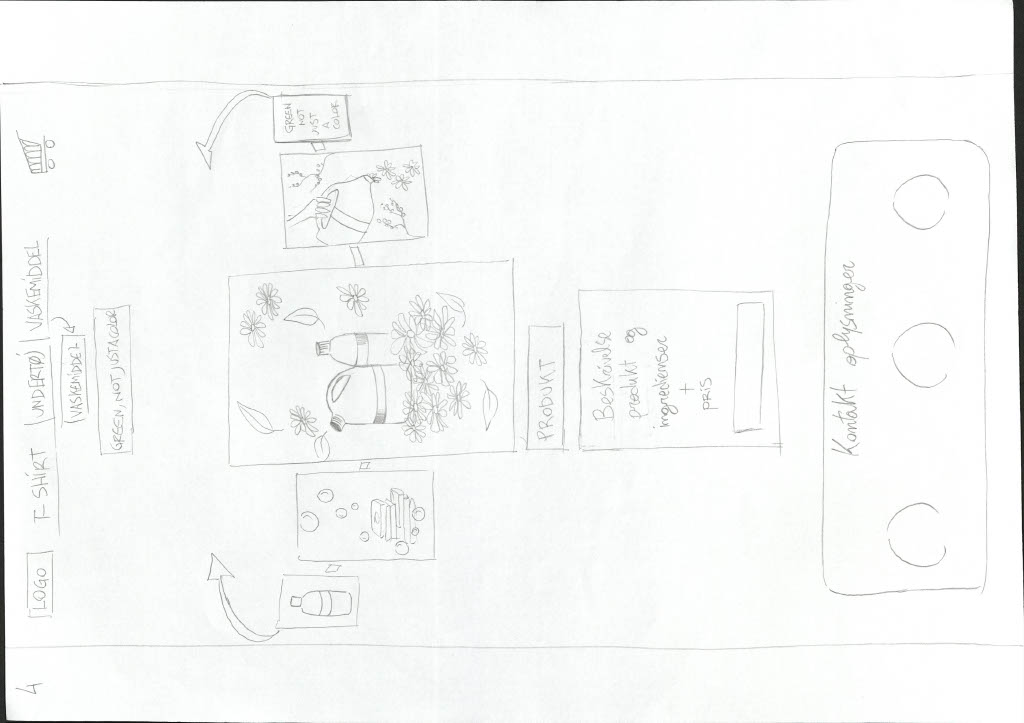 4
LOGO T-SHIRT UNDERTØJ VASKEMIDDEL
VASKEMIDDEL
GREEN, NOT JUST A COLOR
GREEN
NOT
JUST
A
COLOR
PRODUKT
Beskrivelse
produkt og
ingredienser
+
PRIS
Kontakt oplysninger